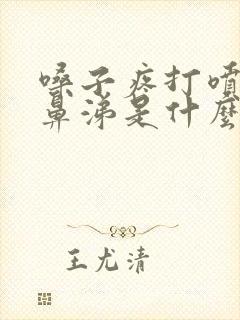 嗓子疼打喷
鼻涕是什麼
王尤清